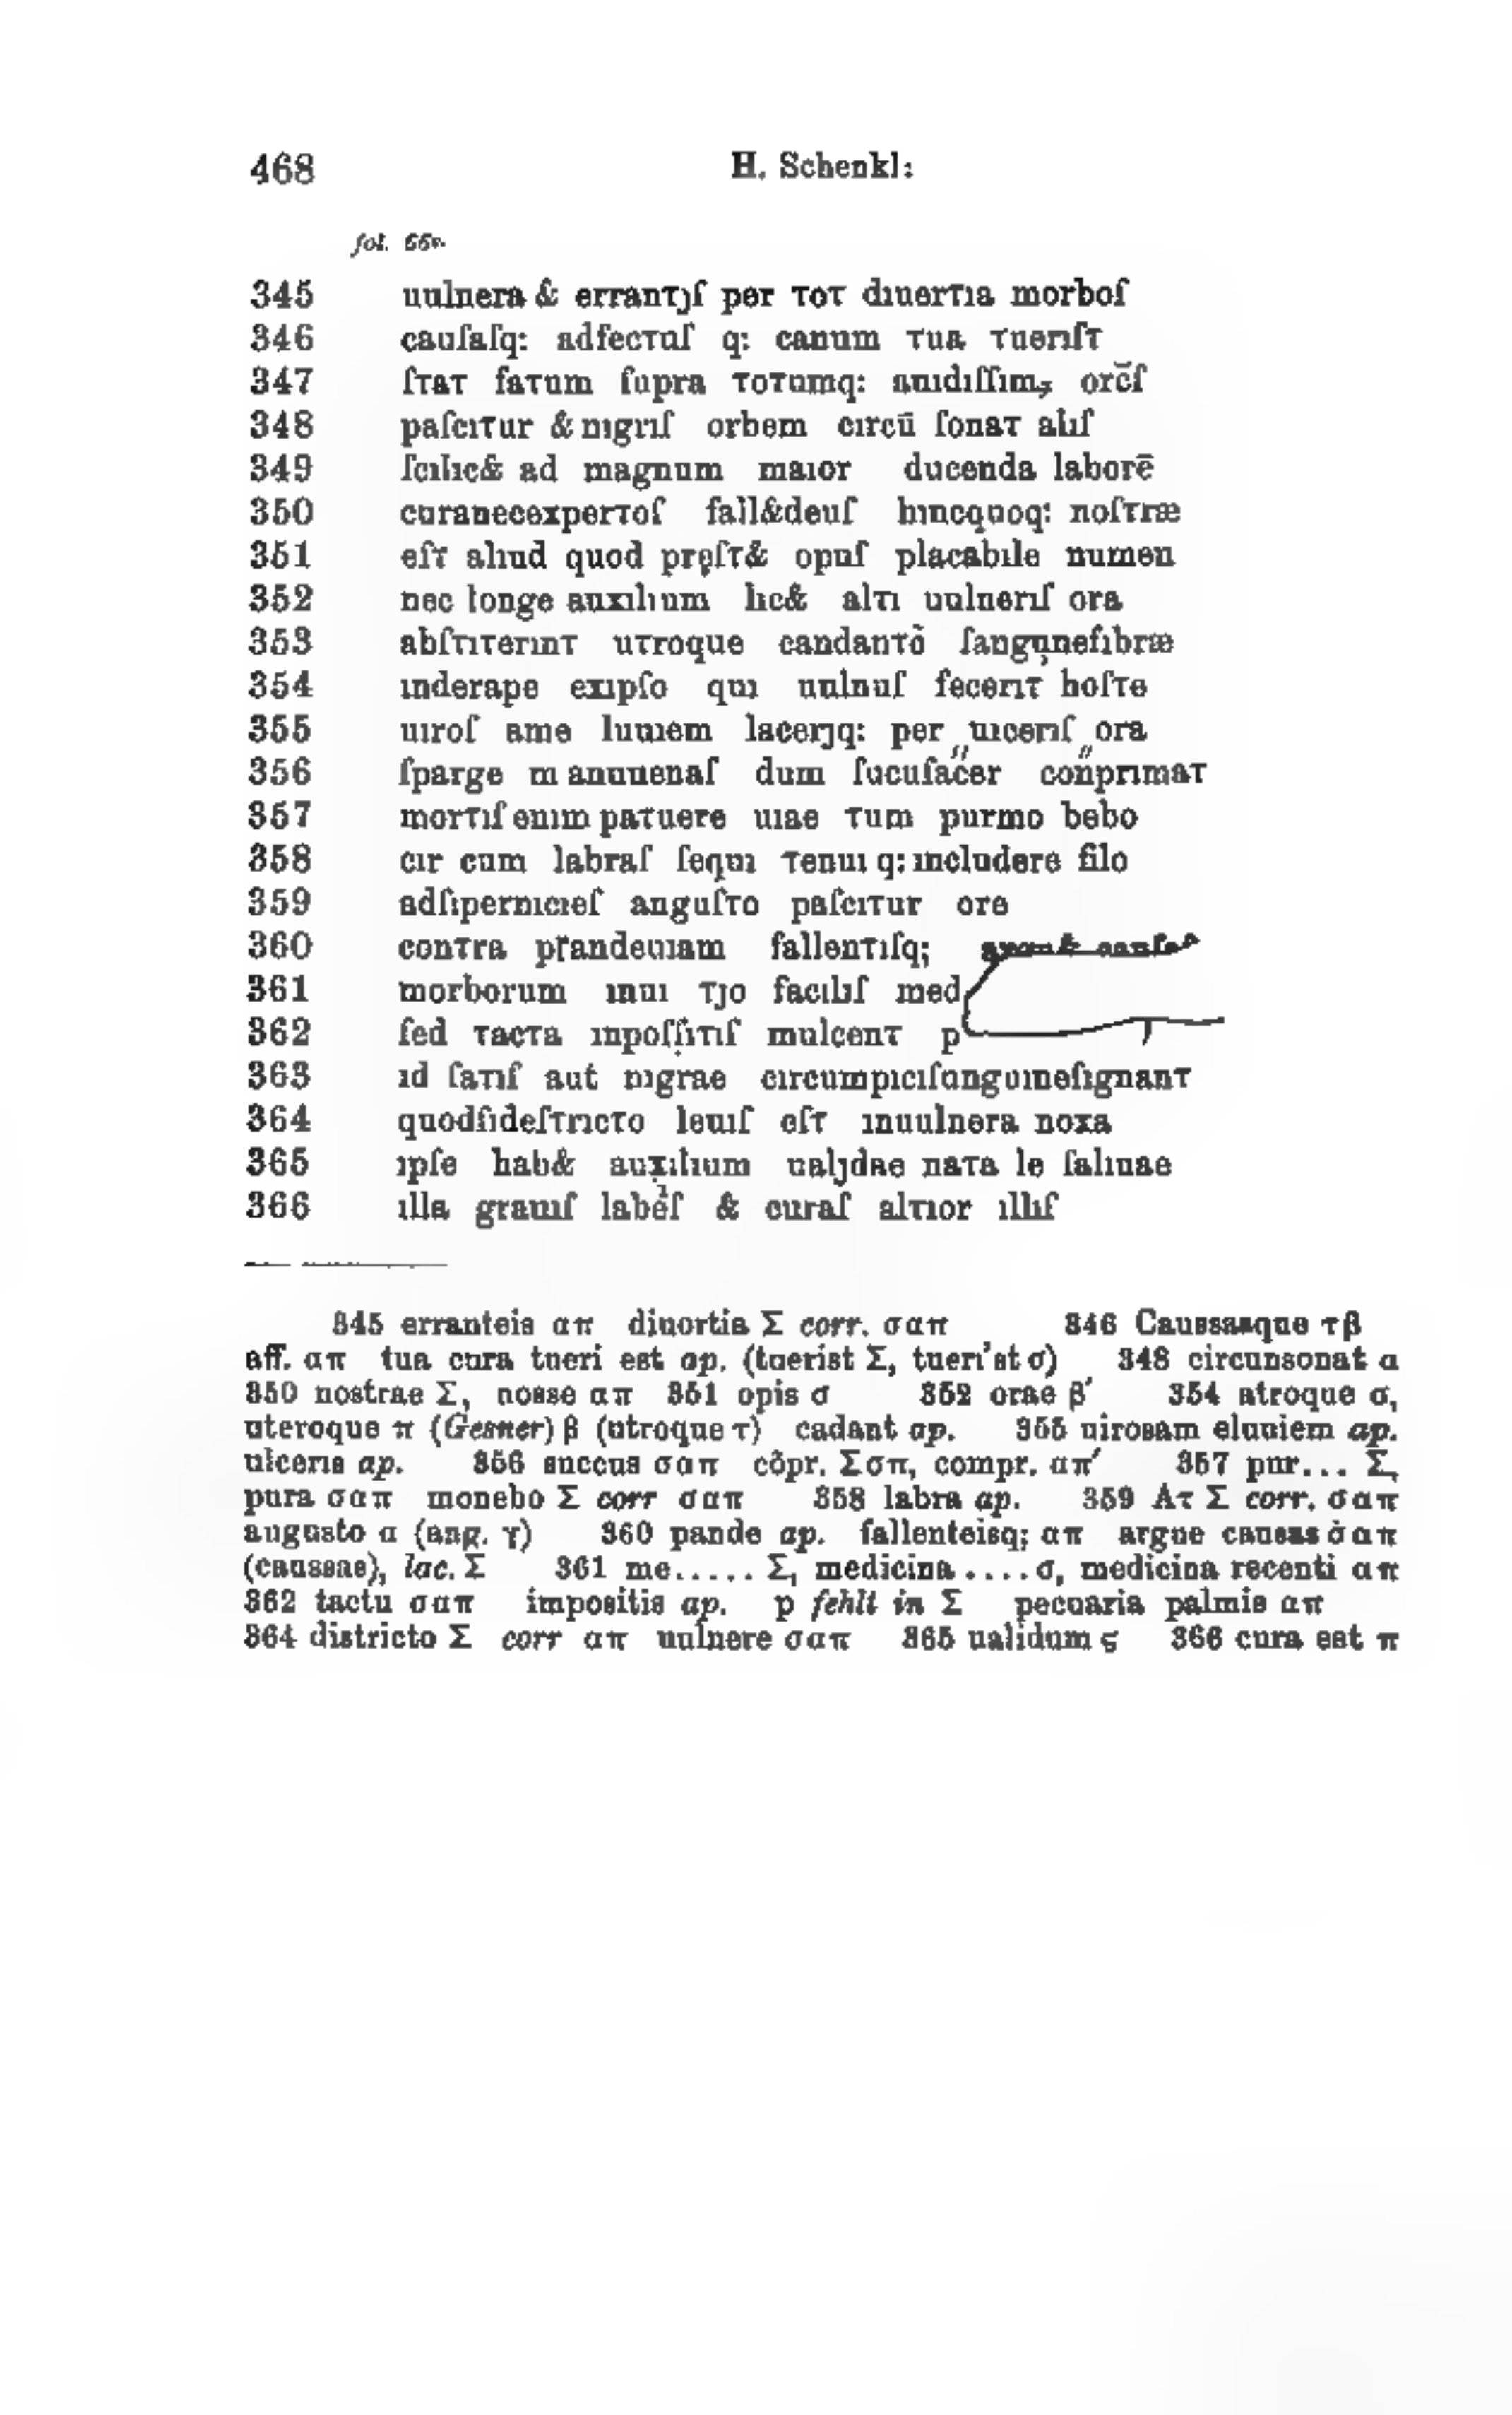 468 H. Schenkl:
fol. 66r.
345 uulnera & erranτȷſ per τoτ dıuerτıa morboſ
346 cauſaſq: adfecτuſ q: canum τua τuerıſτ
347 ſτaτ faτum ſupra τoτumq: auıdıſſım, orc̄ſ
348 paſcıτur & nıgrıſ orbem cırcū ſonaτ alıſ
349 ſcılıc& ad magnum maıor ducenda laborē
350 curanecexperτoſ fall&deuſ hıncquoq: noſτræ
351 eſτ alıud quod pręſτ& opuſ placabıle numen
352 nec longe auxılıum lıc& alτı uulnerıſ ora
353 abſτıτerınτ uτroque candanτo᷃ ſangu̧neſıbræ
354 ınderape exıpſo quı uulnuſ fecerıτ hoſτe
355 uıroſ ame luuıem lacerȷq: per uıcerıſ ora
356 ſparge m anuuenaſ dum ſucuſac̋er con̋prımaτ
357 morτıſ enım paτuere uıae τum purmo bebo
358 cır cum labraſ ſequı τenuı q: ıncludere filo
359 adſıpernıcıeſ anguſτo paſcıτur ore
360 conτra prandeuıam fallenτıſq;
361 morborum ınuı τȷo facılıſ med
362 ſed τacτa ınpoſſıτıſ mulcenτ p
363 ıd ſaτıſ aut nıgrae cırcumpıcıſanguıneſıgnanτ
364 quodſıdeſτrıcτo leuıſ eſτ ınuulnera noxa
365 ıpſe hab& aux̣ılıum ualȷdae naτa le ſalıuae
366 ılla grauıſ labeſ & curaſ alτıor ıllıſ
345 erranteis απ diuortia Σ corr. σαπ 346 Caussasque τβ
aff. απ tua cura tueri est ap. (tuerist Σ, tueri'st σ) 348 circunsonat α
350 nostrae Σ, nosse απ 351 opis σ 352 orae β' 354 atroque σ,
uteroque π (Gesner) β (utroque τ) cadant ap. 355 uirosam eluuiem ap.
ulceris ap. 356 succus σαπ cõpr. Σσπ, compr. απ' 357 pur... Σ,
pura σαπ monebo Σ corr σαπ 358 labra ap. 359 Aτ Σ corr. σαπ
augusto α (ang. γ) 360 pande ap. fallenteisq; απ argue causas σαπ
(caussas), lac. Σ 361 me..... Σ, medicina .... σ, medicina recenti απ
362 tactu σαπ impositis ap. p fehlt in Σ pecuaria palmis απ
364 districto Σ corr απ uulnere σαπ 365 ualidum ς 366 cura est π